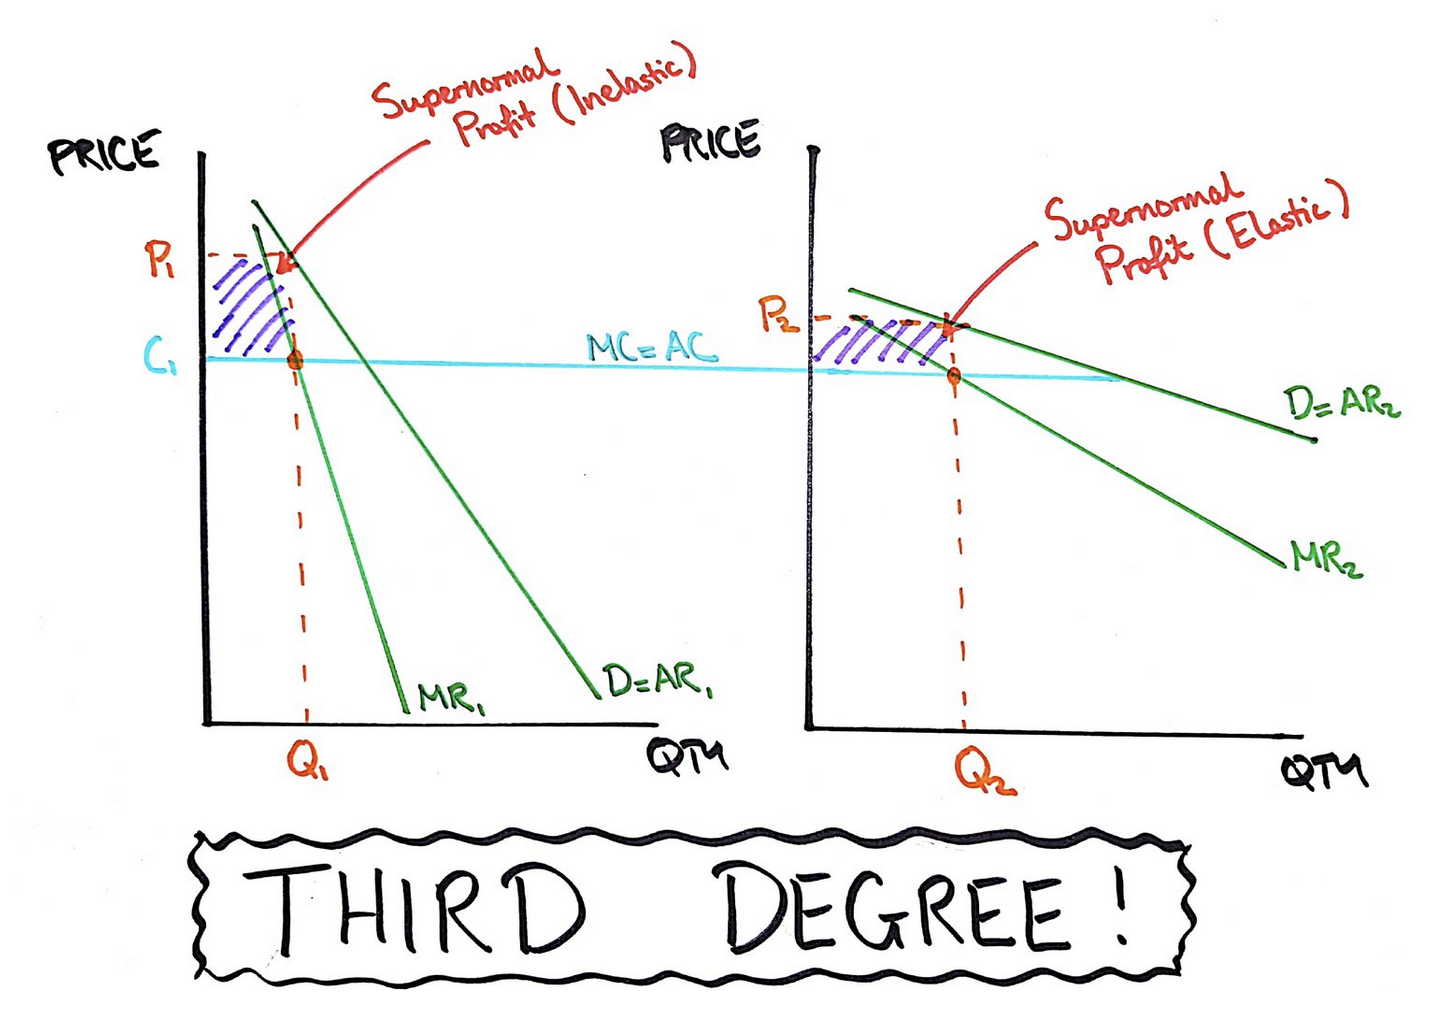 Supernormal
Profit (Inelastic)
PRICE
P₁
C₁
MC=AC
MR₁
D=AR₁
Q₁
QTY
PRICE
Supernormal
Profit (Elastic)
P₂
D=AR₂
MR₂
Q₂
QTY
THIRD DEGREE!